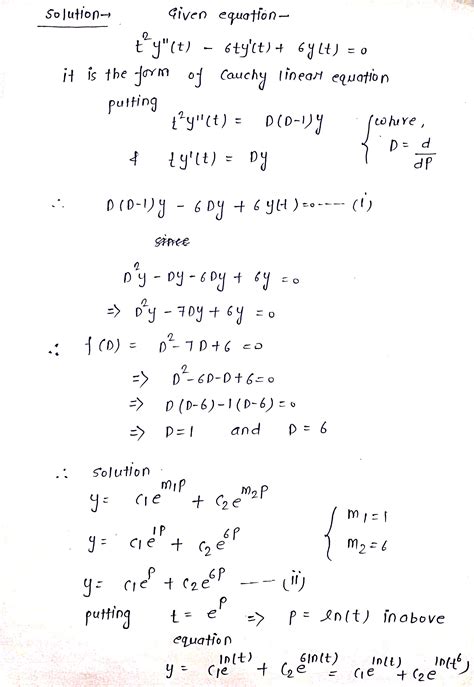 Solution→ Given equation–
t²y"(t) – 6ty'(t) + 6y(t) = 0
it is the form of Cauchy linear equation
putting
t²y"(t) = D(D-1)y { where,
& ty'(t) = Dy D = d/dP
∴ D(D-1)y – 6Dy + 6y(t) = 0 ---- (i)
since
D²y – Dy – 6Dy + 6y = 0
=> D²y – 7Dy + 6y = 0
∴ f(D) = D² – 7D + 6 = 0
=> D² – 6D – D + 6 = 0
=> D(D-6) – 1(D-6) = 0
=> D = 1 and D = 6
∴ solution
y = c₁e^{m₁P} + c₂e^{m₂P}
y = c₁e^{1P} + c₂e^{6P} { m₁ = 1 m₂ = 6
y = c₁e^{P} + c₂e^{6P} ---- (ii)
putting t = e^{P} => P = ln(t) in above
equation
y = c₁e^{ln(t)} + c₂e^{6ln(t)} = c₁e^{ln(t)} + c₂e^{ln(t⁶)}